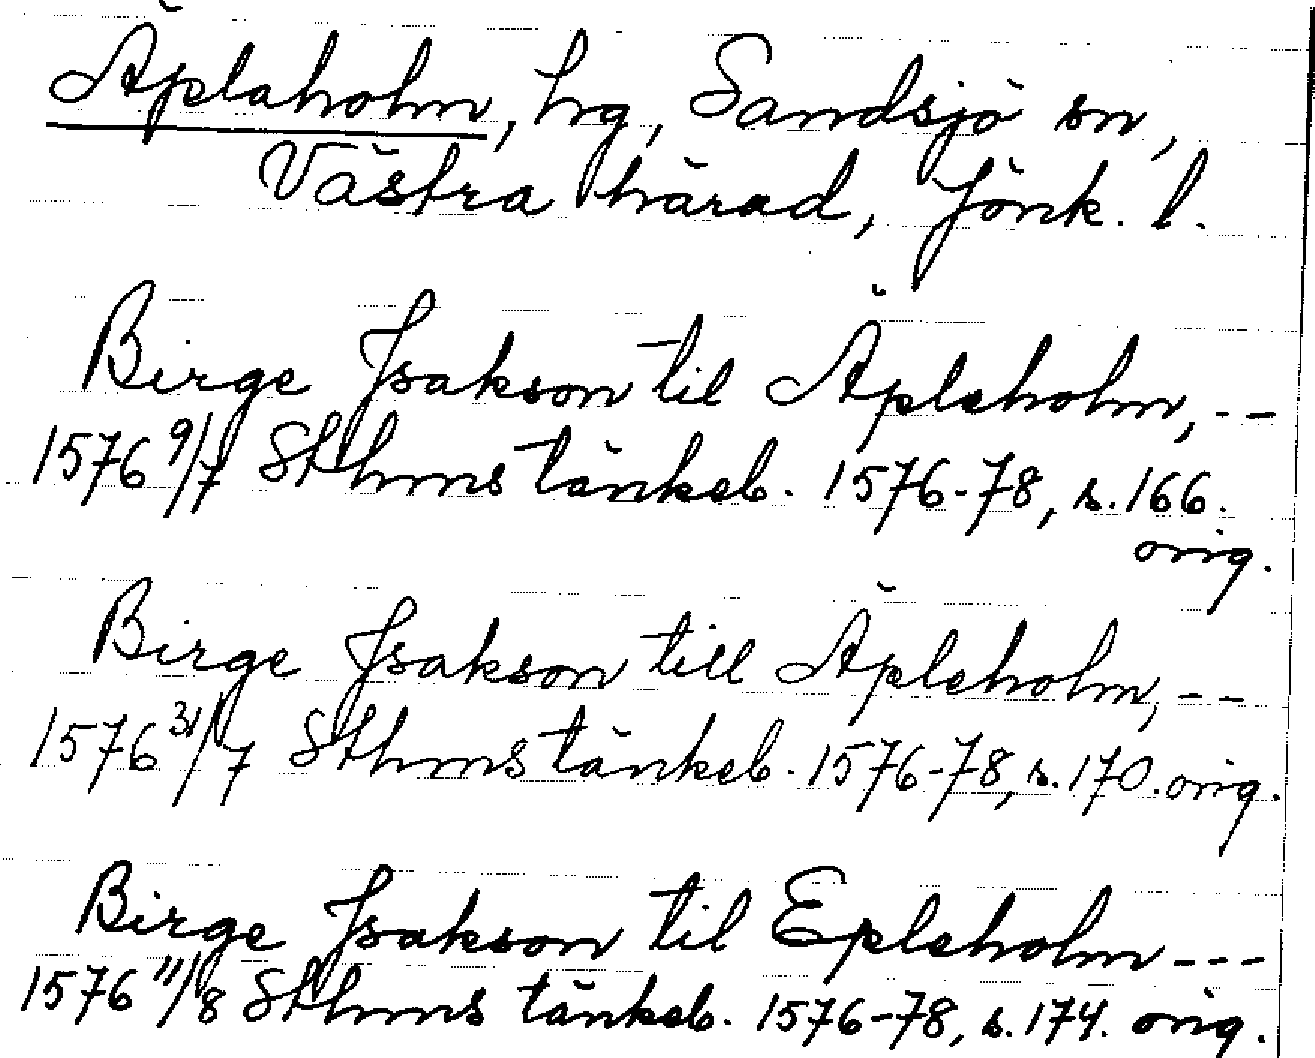 Äplaholm, hg, Sandsjö sn,
Västra härad, Jönk. l.
Birge Jsakson til Äpleholm, --
1576 9/7 Sthms tänkeb. 1576-78, s. 166.
orig.
Birge Jsakson till Äpleholm, --
1576 31/7 Sthms tänkeb. 1576-78, s. 170. orig.
Birge Jsakson til Epleholm ---
1576 11/8 Sthms tänkeb. 1576-78, s. 174. orig.